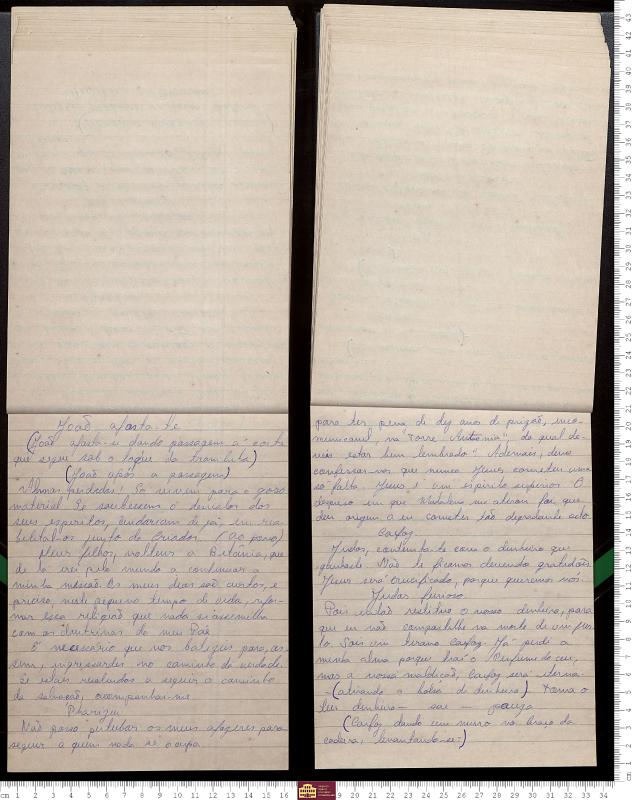 João afasta-te
(João afasta-se dando passagem a corte
que segue sob o toque da trambêta)
(João após a passagem)
"Almas perdidas! Só servem para o gozo
material! Se soubessem o denodo dos
seus espiritos, cuidariam de já, em rea-
bilital-os junto do Creador. (ao povo)
Meus filhos, voltem a Betânia, que
de lá irei pelo mundo a continuar a
minha missão. Os meus dias são curtos, e
preciso, neste pequeno tempo de vida, refor-
mar essa religião que nada se assemelha
com as doutrinas do meu Pai.
É necessário que vos batizeis para, as
sim, ingressardes no caminho da verdade.
Se estais resolvidos a seguir o caminho
da salvação, acompanhai-me.
Phariseu
Não posso pertubar os meus afazeres para
seguir a quem nada se ocupa.
para ter pena de dez anos de prizão, inco-
municavel, na "torre Antonia", do qual de-
veis estar bem lembrado. Ademais, devo
confessar-vos que nunca Jesus cometeu uma
só falta. Jesus é um espirito superior. O
despreso em que Madalena me atirou foi que
deu origem a eu cometer tão degradante acto.
Caifaz.
Judas, contenta-te com o dinheiro que
ganhaste. Não te ficamos devendo gratidões
Jesus será crucificado, porque queremos nós.
Judas furioso.
Pois então restituo o vosso dinheiro, para
que eu não compartilhe na morte de um jus
to. Sois um tirano Caifaz. Já perdi a
minha alma porque traí o Perfume do céu,
mas a nossa maldicão, Caifaz será eterna.
- (atirando a bolsa de dinheiro) Toma o
teu dinheiro - sae - pausa
(Caifaz dando um murro no braço da
cadeira, levantando-se:)
cm 1 2 3 4 5 6 7 8 9 10 11 12 13 14 15 16 19 20 21 22 23 24 25 26 27 28 29 30 31 32 33 34